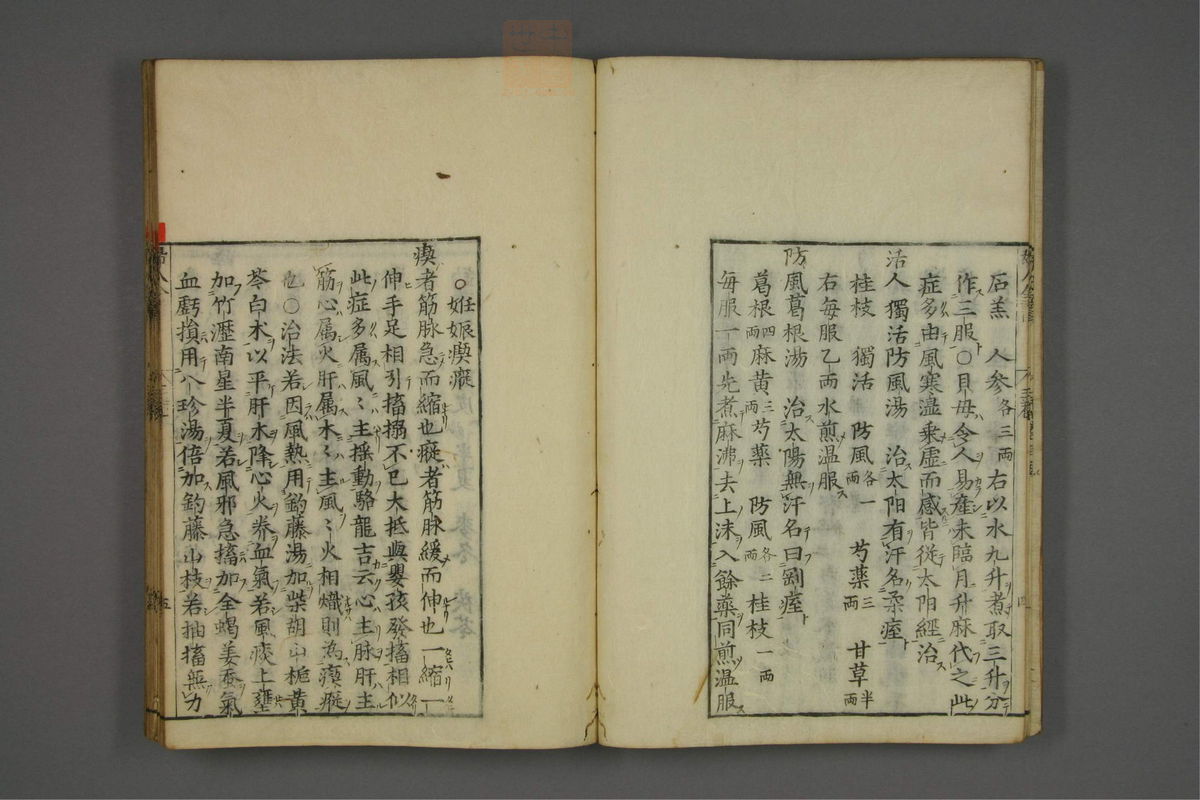 石羔　人參各三兩右以水九升煮取三升分
作三服〇貝母令人易産未臨月升麻代之此
症多由風寒温乗虚而感皆從太阳經治
活人獨活防風湯　治太阳有汗名柔痓
桂枝　獨活　防風各一兩　芍薬三兩　甘草半兩
右毎服乙兩水煎温服
防風葛根湯　治太陽無汗名曰剛痓
葛根四兩麻黄三兩芍薬　防風各二兩桂枝一兩
毎服一両先煮麻沸去上沫入餘薬同煎温服
〇妊娠瘈瘲
瘈者筋脉急而縮也瘲者筋脉緩而伸也一縮一
伸手足相引搐搦不已大抵與嬰孩發搐相似
此症多属風〻主揺動駱龍吉云心主脉肝主
筋心属火肝属木〻主風〻火相熾則為瘈瘲
也〇治法若因風熱用釣藤湯加柴胡山梔黄
芩白木以平肝木降心火养血氣若風痰上壅
加竹瀝南星半夏若風邪急搐加全蝎姜蚕氣
血虧損用八珍湯倍加釣藤山枝若抽搐無力